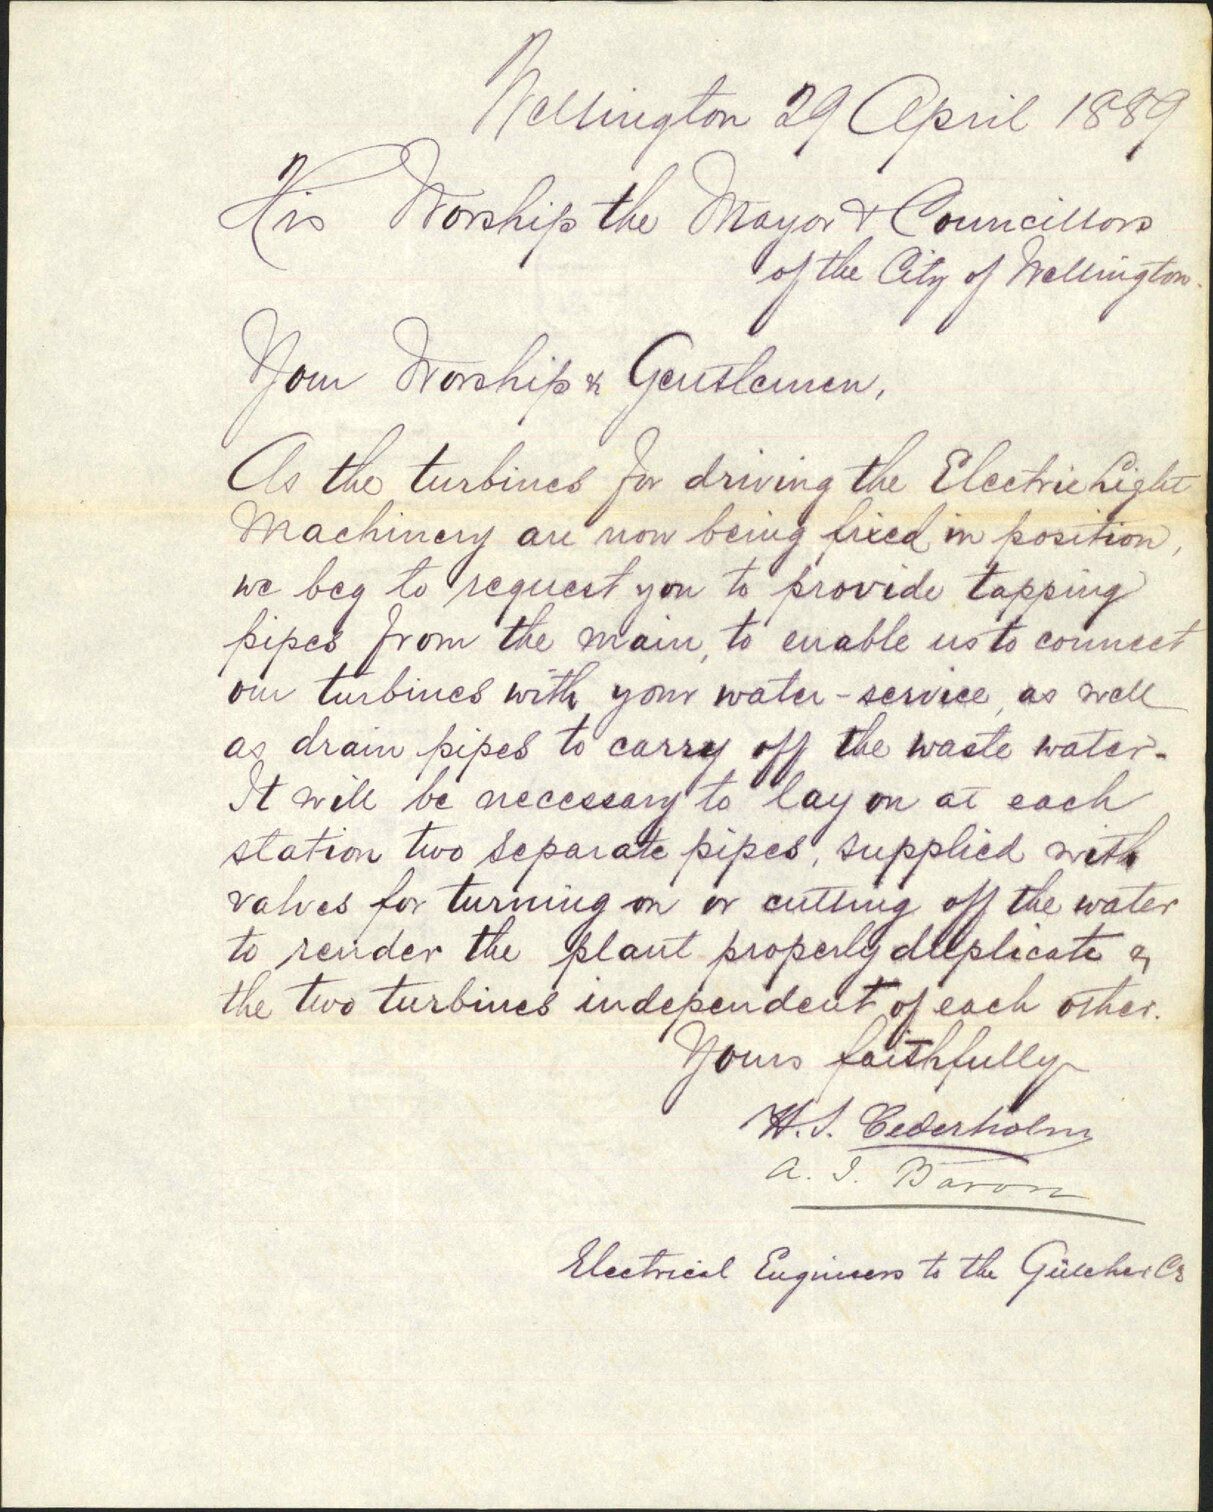 Wellington 29 April 1889
His Worship the Mayor & Councillors
of the City of Wellington.
Your Worship & Gentlemen,
As the turbines for driving the Electric Light
Machinery are now being fixed in position,
we beg to request you to provide tapping
pipes from the main, to enable us to connect
our turbines with your water-service, as well
as drain pipes to carry off the waste water.
It will be necessary to lay on at each
station two separate pipes, supplied with
valves for turning on or cutting off the water
to render the plant properly duplicate &
the two turbines independent of each other.
Yours faithfully
H. S. Cederholm
A. I. Baron
Electrical Engineers to the Gülcher Co